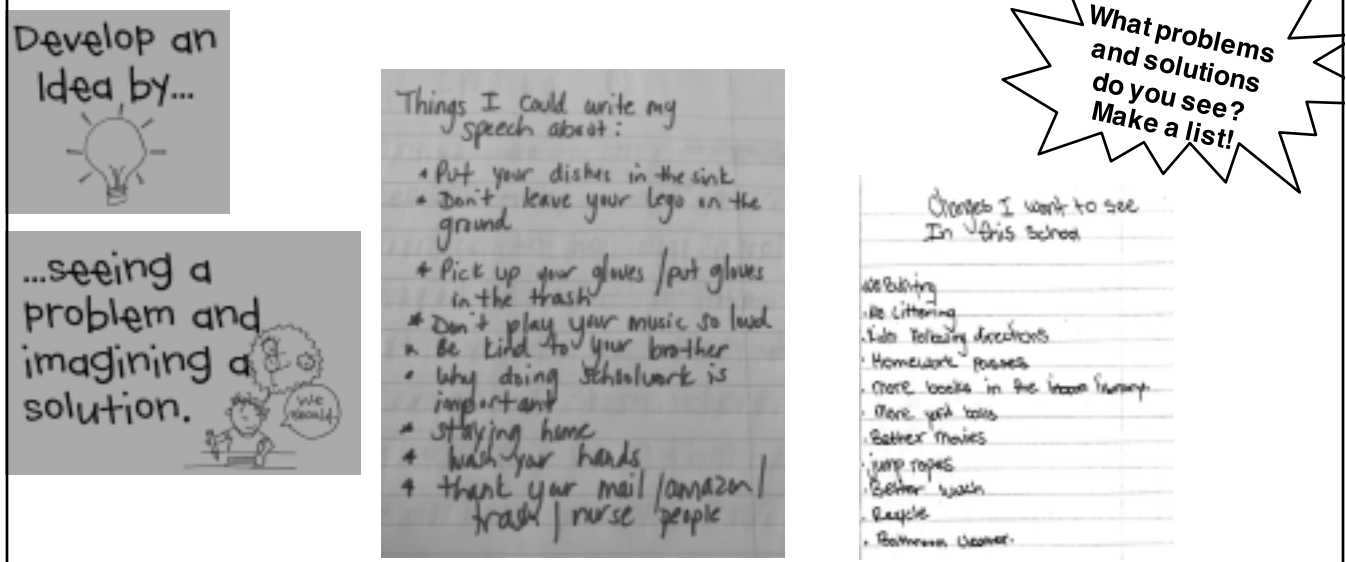 Develop an
Idea by...
...seeing a
problem and
imagining a
solution.
We
should
Things I could write my
speech about:
• Put your dishes in the sink
• Don't leave your lego on the
ground
• Pick up your gloves /put gloves
in the trash
• Don't play your music so loud
• Be kind to your brother
• Why doing schoolwork is
important
• staying home
• wash your hands
• thank your mail /amazon/
trash / nurse people
What problems
and solutions
do you see?
Make a list!
Changes I want to see
In this School
No Bullying
• No Littering
• Kids following directions
• Homework passes
• more books in the library
• More yard balls
• Better movies
• jump ropes
• Better lunch
• Recycle
• Bathroom cleaner.